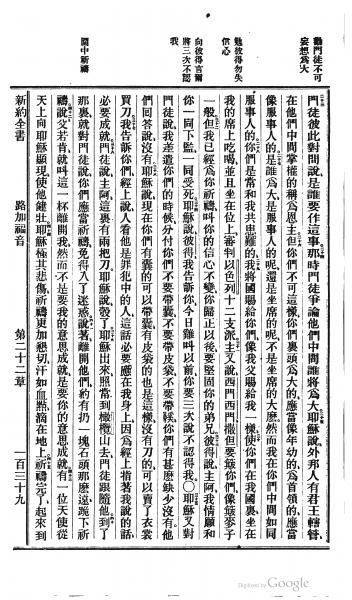 勸門徒不可
妄想爲大
勉彼得勿失
信心
向彼得言爾
將三次不認
我
園中祈禱
門徒彼此對問說是誰要作這事那時門徒爭論他們中間誰將爲大耶穌說外邦人有君王轄管
在他們中間掌權的稱爲恩主但你們不可這樣你們裏頭爲大的應當像年幼的爲首領的應當
像服事人的是誰爲大是服事人的呢還是坐席的呢不是坐席的大麽然而我在你們中間如同
服事人的你們是常和我共患難的我將國賜給你們像我父賜給我一樣使你們在我國裏坐在
我的席上吃喝並且坐在位上審判以色列十二支派主又說西門西門撒但要簸你們像簸麥子
一般但我已經爲你祈禱叫你的信心不變你歸正以後要堅固你的弟兄彼得說主阿我情願和
你一同下監一同受死耶穌說彼得我告訴你今日雞叫以前你要三次說不認得我〇耶穌又對
門徒說我差遣你們的時候分付你們不要帶囊不要帶皮袋不要帶鞋你們有甚麽缺少沒有他
們回答說沒有耶穌說現在你們有囊的可以帶囊有皮袋的也是這樣沒有刀的可以賣了衣裳
買刀我告訴你們經上說人看他是罪犯中的人這話必要應在我身上因爲經上指著我說的話
必要成就門徒說主阿這裏有兩把刀耶穌說彀了耶穌出來照常到橄欖山去門徒跟隨他到了
那裏就對門徒說你們應當祈禱免得入了迷惑說著離開他們約有扔一塊石頭那麽遠跪下祈
禱說父若肯就叫這一杯離開我然而不是要我的意思成就是要你的意思成就有一位天使從
天上向耶穌顯現使他健壯耶穌極其悲傷祈禱更加懇切汗如血點滴在地上祈禱完了起來到
新約全書　路加福音　第二十二章　一百三十九
Digitized by Google